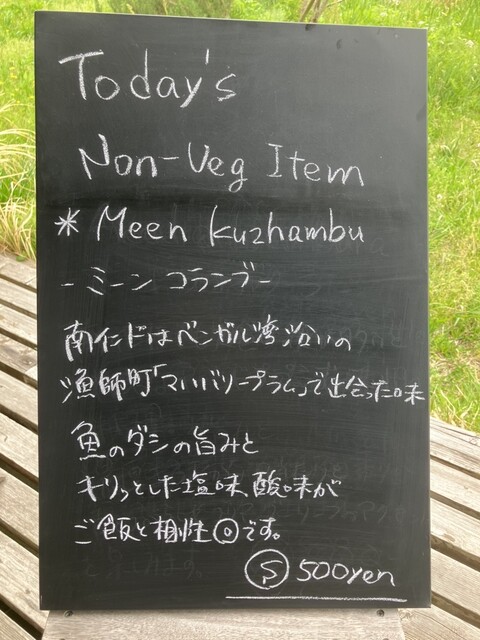 Today's
Non-Veg Item
* Meen kuzhambu
- ミーン コランブ -
南インドはベンガル湾沿いの
漁師町「マハバリープラム」で出会った味
魚のダシの旨みと
キリッとした塩味、酸味が
ご飯と相性◎です。
Ⓢ 500yen